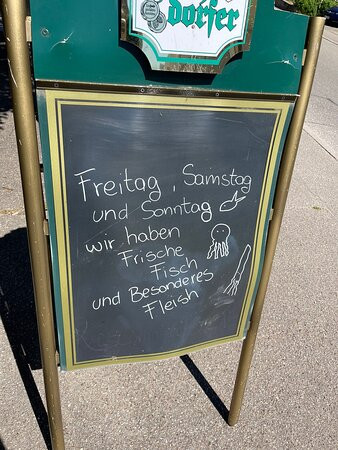 dorfer
Freitag, Samstag
und Sonntag
wir haben
Frische
Fisch
und Besonderes
Fleish